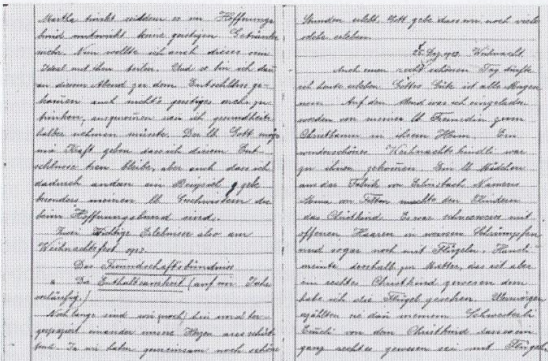 Martha trinkt seitdem es im Hoffnungs
bund mitwirkt keine geistigen Getränke
mehr. Nun wollte ich auch dieses
Ideal mit ihm teilen. Und so bin ich dan
an diesem Abend zu dem Entschluss ge-
kommen auch nicht's geistiges mehr zu
trinken, ausgenommen wen ich gesundheits
halber nehmen müsste. Der lb. Gott möge
mir Kraft geben dass ich diesem Ent-
schlusse treu bleibe, aber auch dass ich
dadurch andern ein Beispiel gebe
besonders meinen lb. Geschwistern die
beim Hoffnungsbund sind.
Zwei wichtige Erlebnisse also am
Weihnachtsfest
Das Freundschaftsbündniss
" Die Enthaltsamkeit (auf ein Jahr
vorläufig.)
Noch lange sind wir
gegenseitig einander unsere Herzen
Ja wir haben gemeinsam noch schöne
Stunden erlebt. Gott gebe dass wir noch viele
solche erleben.
25. Dez. Weihnacht.
Auch einen recht schönen Tag durfte
ich heute erleben. Gottes Güte ist alle Morgen
neu. Auf den Abend war ich eingeladen
worden von meiner lb. Freundin zum
Christbaum in ihrem Heim. Ein
wunderschönes Weihnachtskindli war
zu ihnen gekommen. Ein lb. Mädchen
aus der Fabrik von Namens
Anna von machte den Kindern
das Christkind. Es war schneeweiss mit
offenen Haaren in weissen Strümpfen
und sogar noch mit Flügeln. Hansli
meinte deshalb zur Mutter, das ist aber
ein rechtes Christkind gewesen denn
habe ich die Flügel gesehen.
erzählten sie dan meinem Schwesterli
von dem Christkind dass es ein
ganz rechtes gewesen sei mit Flügeln